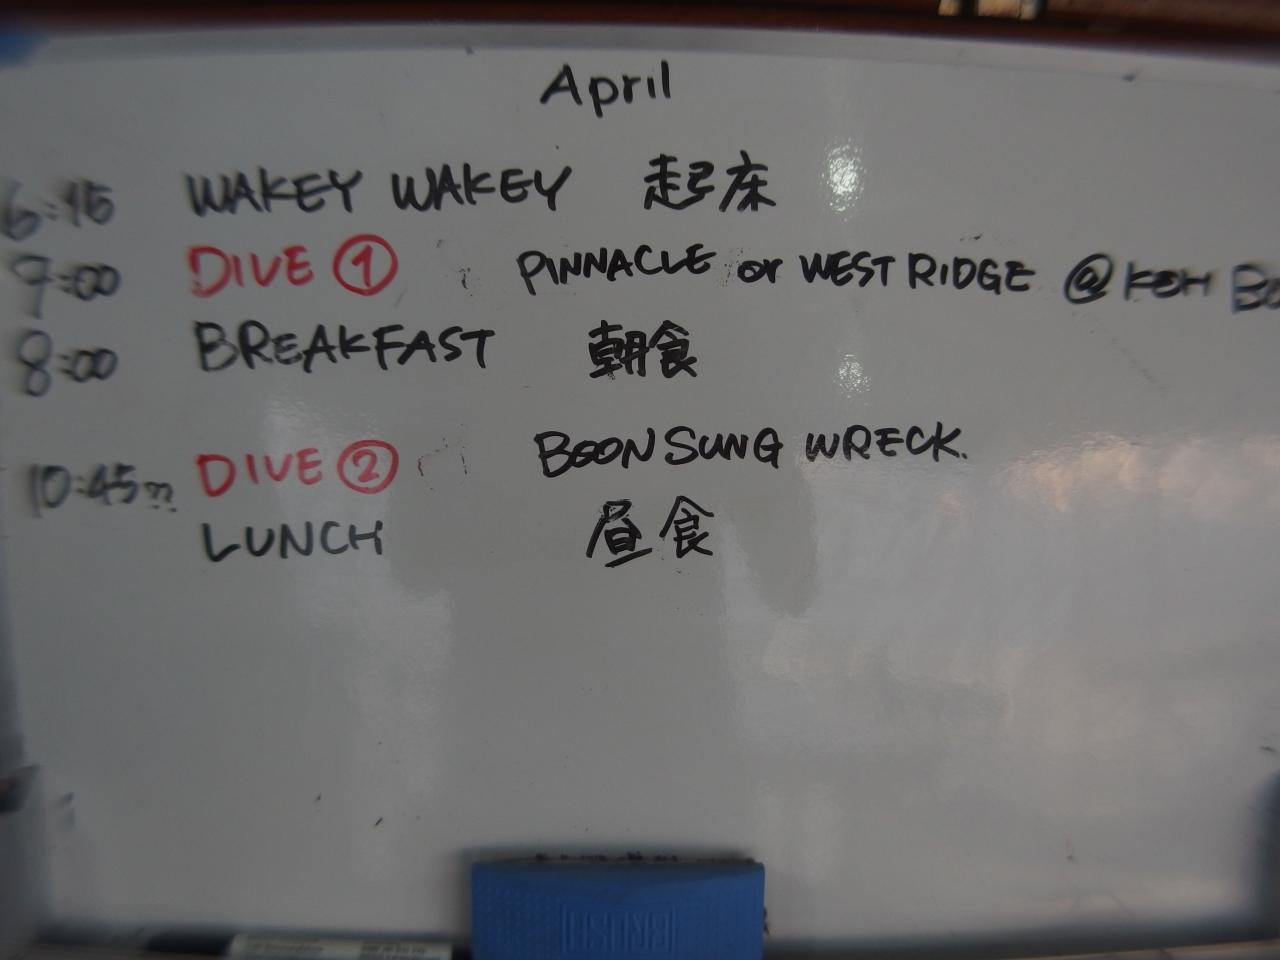 April
6:15 WAKEY WAKEY 起床
7:00 DIVE ① PINNACLE or WEST RIDGE @ KOH BO
8:00 BREAKFAST 朝食
10:45?? DIVE ② BOONSUNG WRECK.
LUNCH 昼食
BRUSH